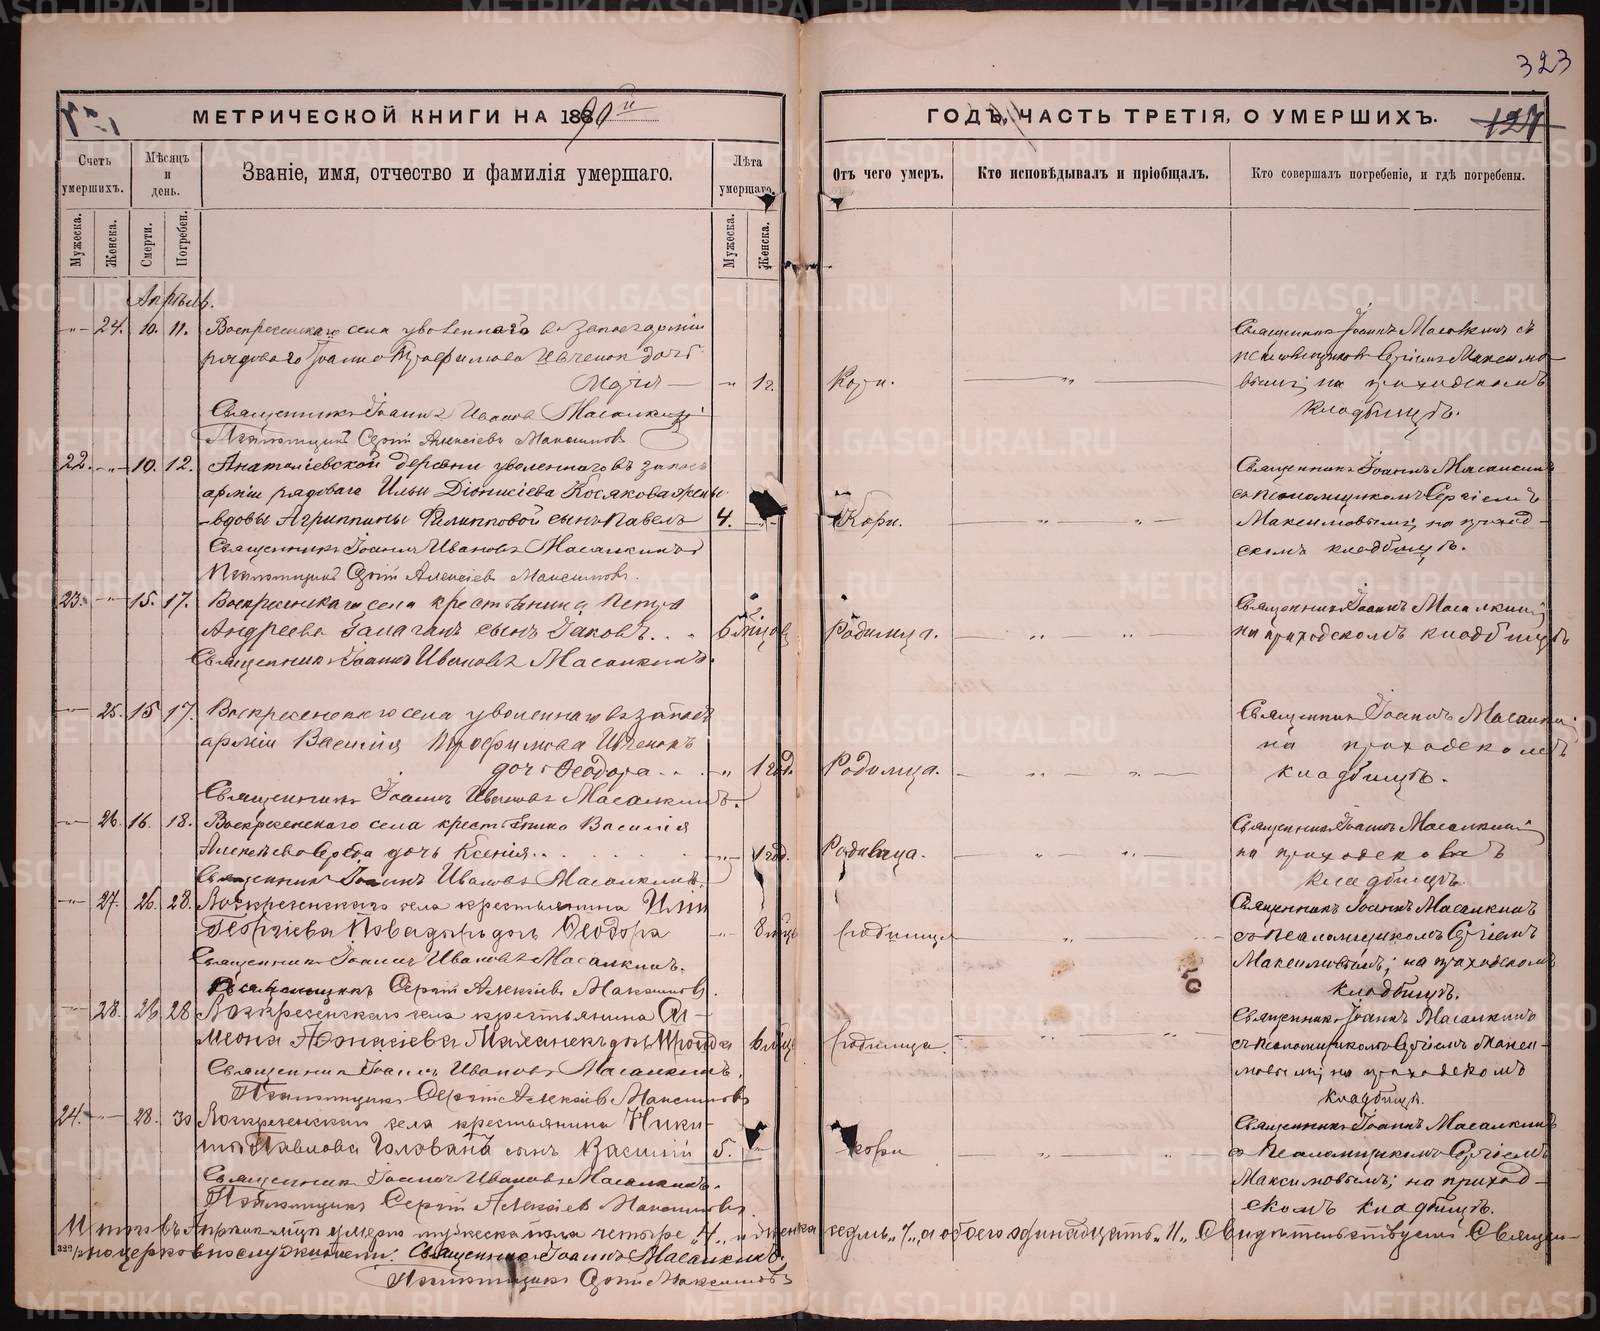 323
МЕТРИЧЕСКОЙ КНИГИ НА 1890й
ГОДЪ, ЧАСТЬ ТРЕТІЯ, О УМЕРШИХЪ.
127
Счетъ умершихъ.
Мѣсяцъ и день.
Званіе, имя, отчество и фамилія умершаго.
Лѣта умершаго.
Отъ чего умеръ.
Кто исповѣдывалъ и пріобщалъ.
Кто совершалъ погребеніе, и гдѣ погребены.
Мужеска.
Женска.
Смерти.
Погребен.
Мужеска.
Женска.
Апрѣль.
24. 10. 11. Воскресенскаго села уволеннаго въ запас арміи
рядового Іоанна Трофимова Ивченок дочь
Марія — „ 1г. Кори.
Священникъ Іоаннъ Ивановъ Масалкинъ
Псаломщикъ Сергій Алексіевъ Максимовъ
Священникъ Іоаннъ Масалкинъ съ
псаломщикомъ Сергіемъ Максимо-
вымъ; на приходскомъ
кладбищѣ.
22. 10. 12. Анатоліевской деревни уволеннаго въ запасъ
арміи рядоваго Ильи Діонисіева Косякова жены
вдовы Агриппины Филипповой сынъ Павелъ 4. Кори.
Священникъ Іоаннъ Ивановъ Масалкинъ
Псаломщикъ Сергій Алексіевъ Максимовъ.
Священникъ Іоаннъ Масалкинъ
съ псаломщикомъ Сергіемъ
Максимовымъ; на приход-
скомъ кладбищѣ.
23. 15. 17. Воскресенскаго села крестьянина Петра
Андреева сынъ Іаковъ. Родимца.
Священникъ Іоаннъ Ивановъ Масалкинъ.
Священникъ Іоаннъ Масалкинъ
на приходскомъ кладбищѣ
25. 15 17. Воскресенскаго села уволеннаго въ запасъ
арміи Василія Трофимова Ивченокъ
дочь Ѳеодора „ 1 год. Родимца.
Священникъ Іоаннъ Ивановъ Масалкинъ.
Священникъ Іоаннъ Масалкинъ
на приходскомъ
кладбищѣ.
26. 16. 18. Воскресенскаго села крестьянина Василія
Алексѣева дочь Ксенія 1 год. Родимца.
Священникъ Іоаннъ Ивановъ Масалкинъ.
Священникъ Іоаннъ Масалкинъ
на приходскомъ
кладбищѣ.
27. 26. 28. Воскресенскаго села крестьянина Иліи
Георгіева дочь Ѳеодора 8 родимца
Священникъ Іоаннъ Ивановъ Масалкинъ.
Псаломщикъ Сергій Алексіевъ Максимовъ.
Священникъ Іоаннъ Масалкинъ
съ псаломщикомъ Сергіемъ
Максимовымъ; на приходскомъ
кладбищѣ.
28. 26 28 Воскресенскаго села крестьянина Си-
меона Аѳанасіева дочь 6 родимца.
Священникъ Іоаннъ Ивановъ Масалкинъ.
Псаломщикъ Сергій Алексіевъ Максимовъ
Священникъ Іоаннъ Масалкинъ
съ псаломщикомъ Сергіемъ Макси-
мовымъ; на приходскомъ
кладбищѣ.
24. 28. 30 Воскресенскаго села крестьянина Ники-
ты Павлова Голована сынъ Василій 5. кори
Священникъ Іоаннъ Ивановъ Масалкинъ.
Псаломщикъ Сергій Алексіевъ Максимовъ.
Священникъ Іоаннъ Масалкинъ
съ Псаломщикомъ Сергіемъ
Максимовымъ; на приход-
скомъ кладбищѣ.
Итого въ Апрѣлѣ мцѣ умерло мужеска пола четыре „4„ и женска седмь „7„ а обоего одинадцать „11„ Свидѣтельствуемъ Священ-
но церковнослужители: Священникъ Іоаннъ Масалкинъ.
Псаломщикъ Сергій Максимовъ
METRIKI.GASO-URAL.RU